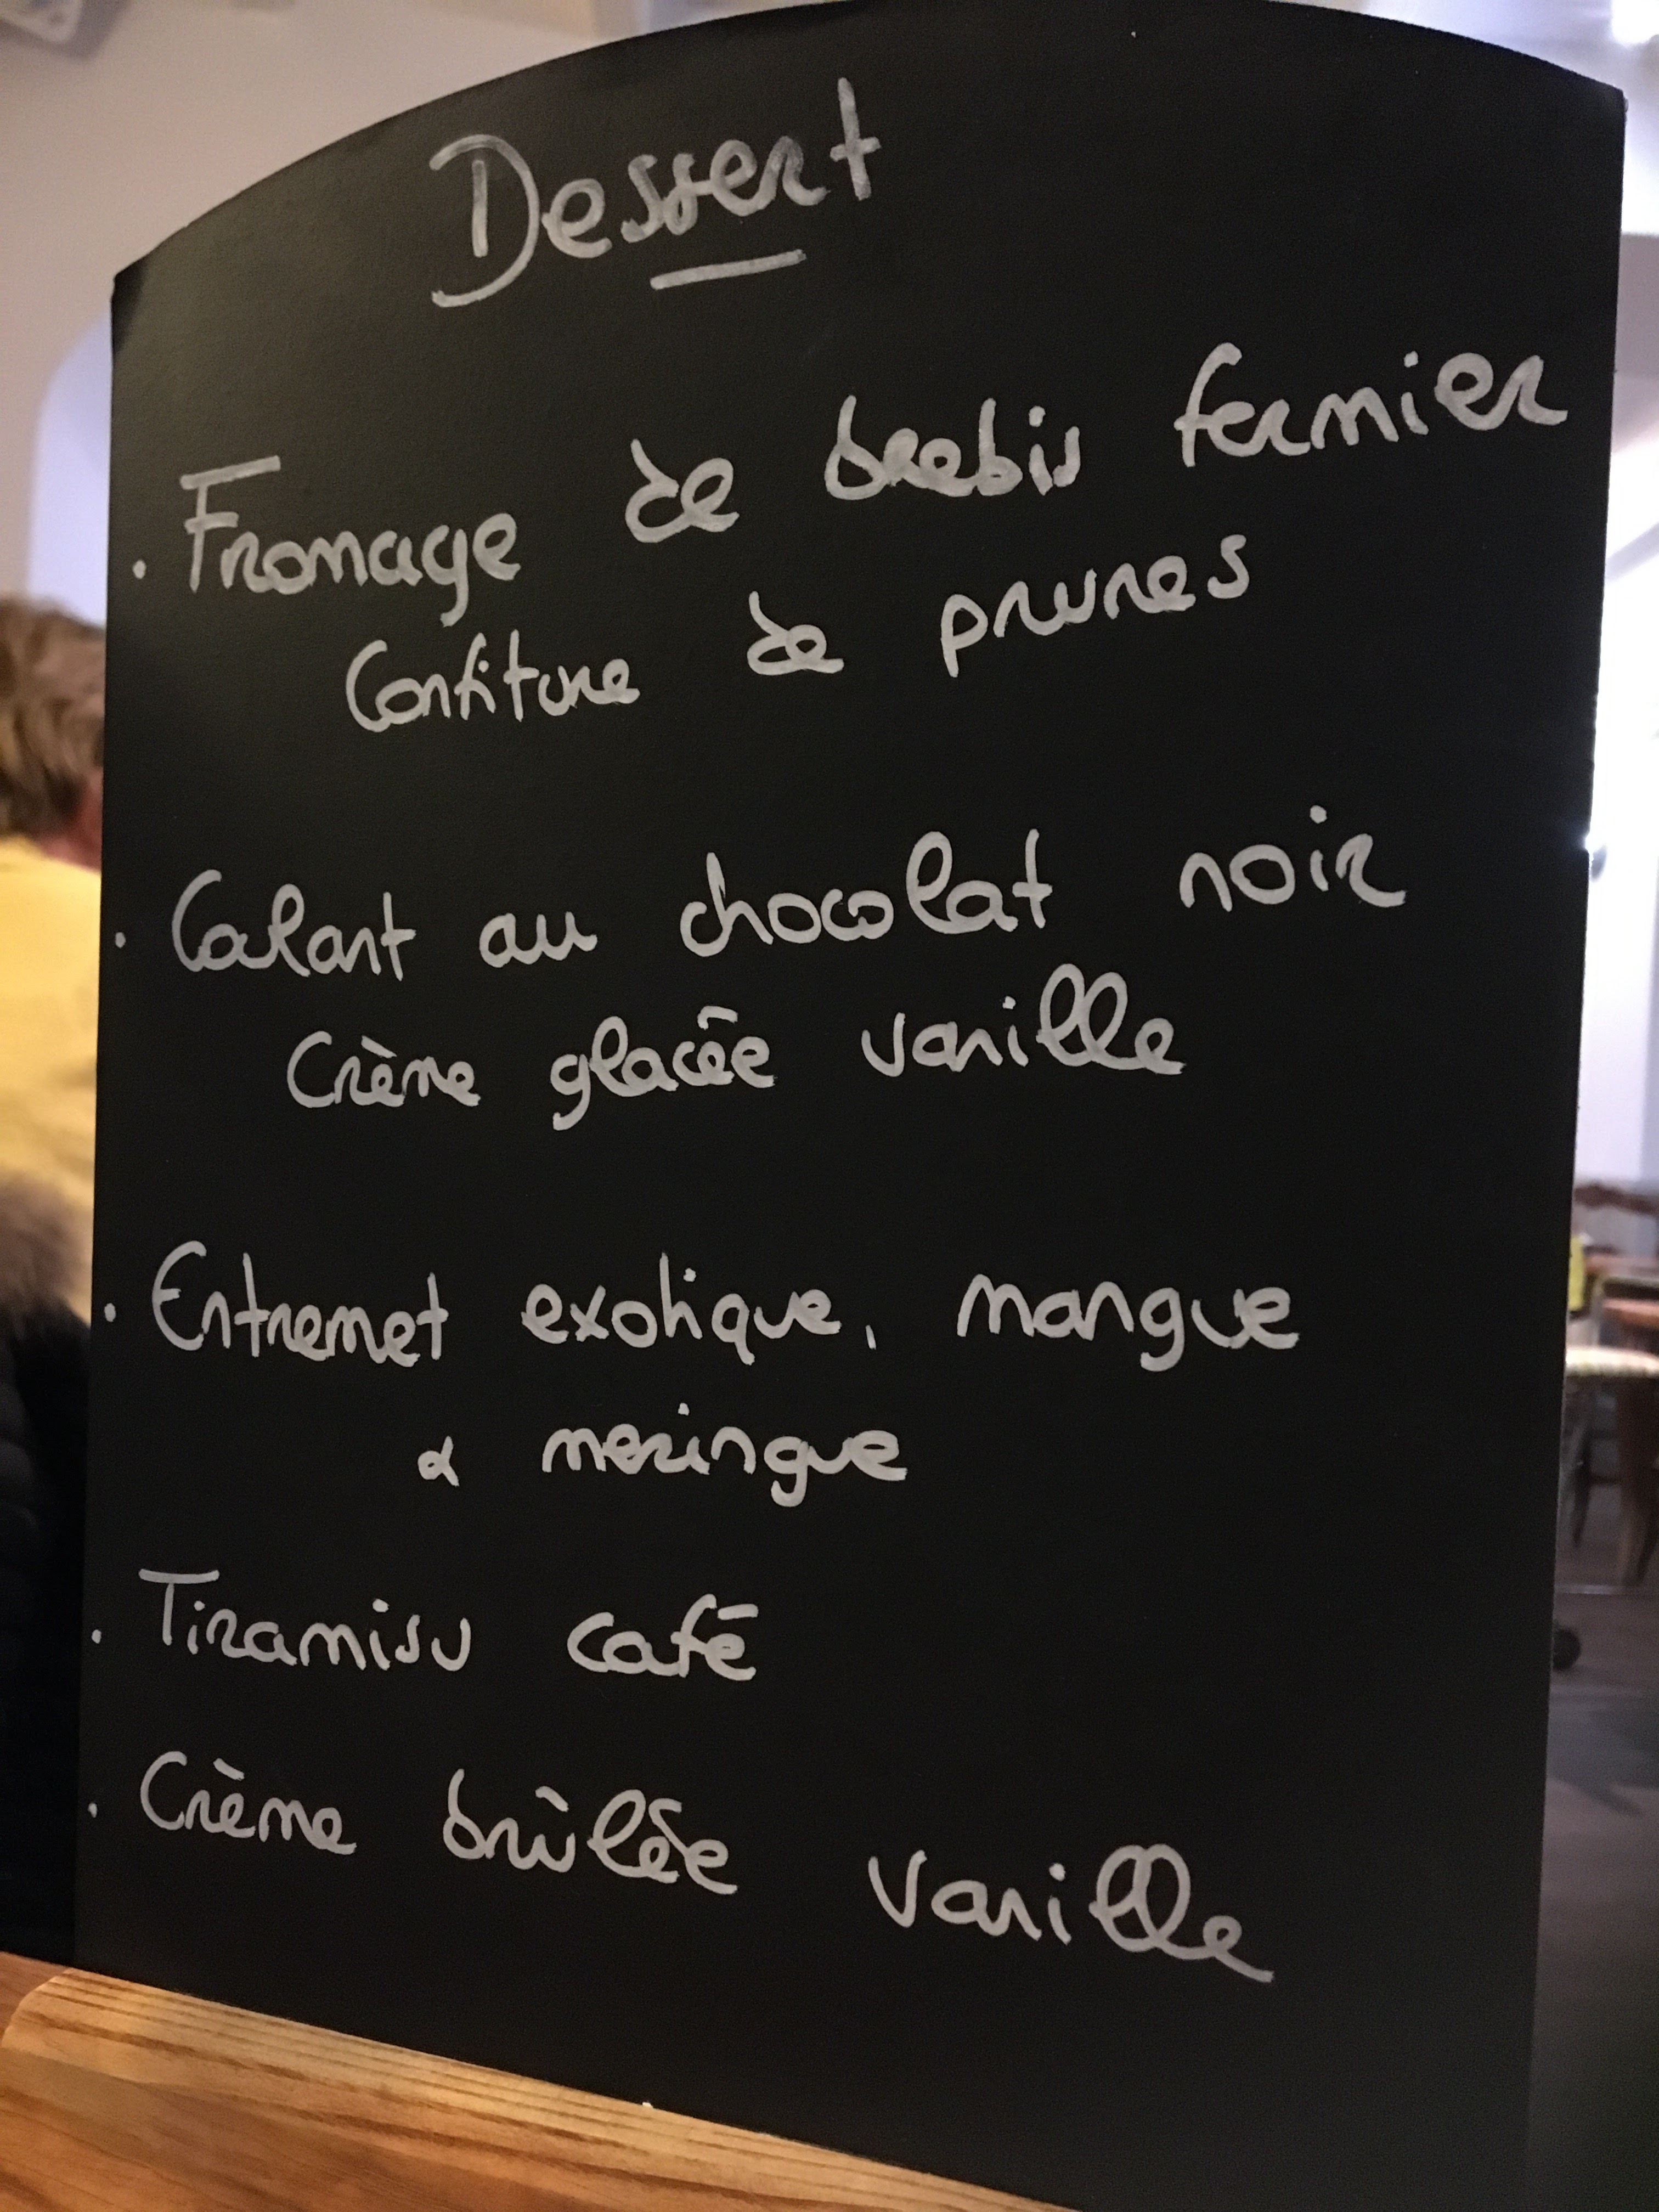 Dessert
. Fromage de brebis fermier
Confiture de prunes
. Coulant au chocolat noir
Crème glacée vanille
. Entremet exotique, mangue
& meringue
. Tiramisu café
. Crème brûlée vanille